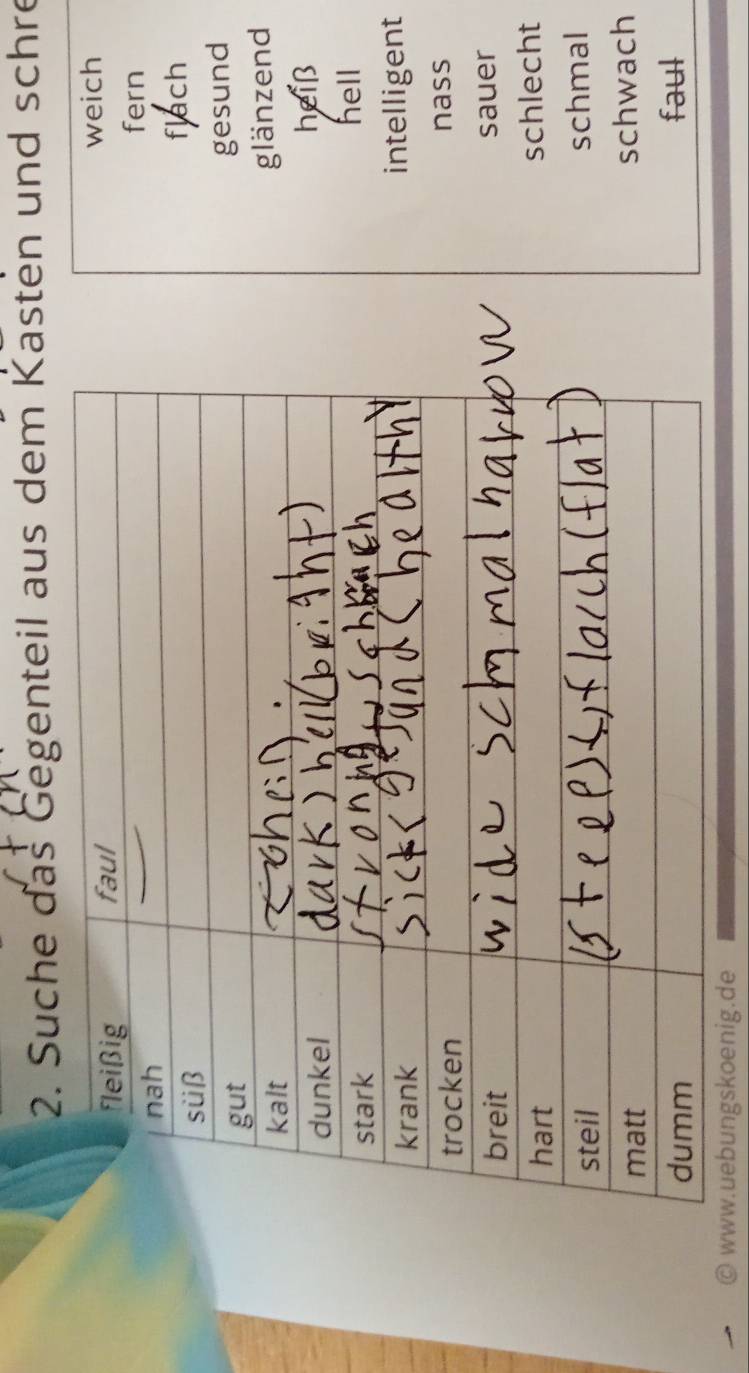 2. Suche das Gegenteil aus dem Kasten und schre
fleißig faul
nah
süß
gut
kalt
dunkel dark) hell (bright)
stark strong schwach
krank sick < gesand < healthy
trocken
breit wide schmal narrow
hart
steil (steep) flach (flat)
matt
dumm
weich
fern
flach
gesund
glänzend
heiß
hell
intelligent
nass
sauer
schlecht
schmal
schwach
faul
© www.uebungskoenig.de